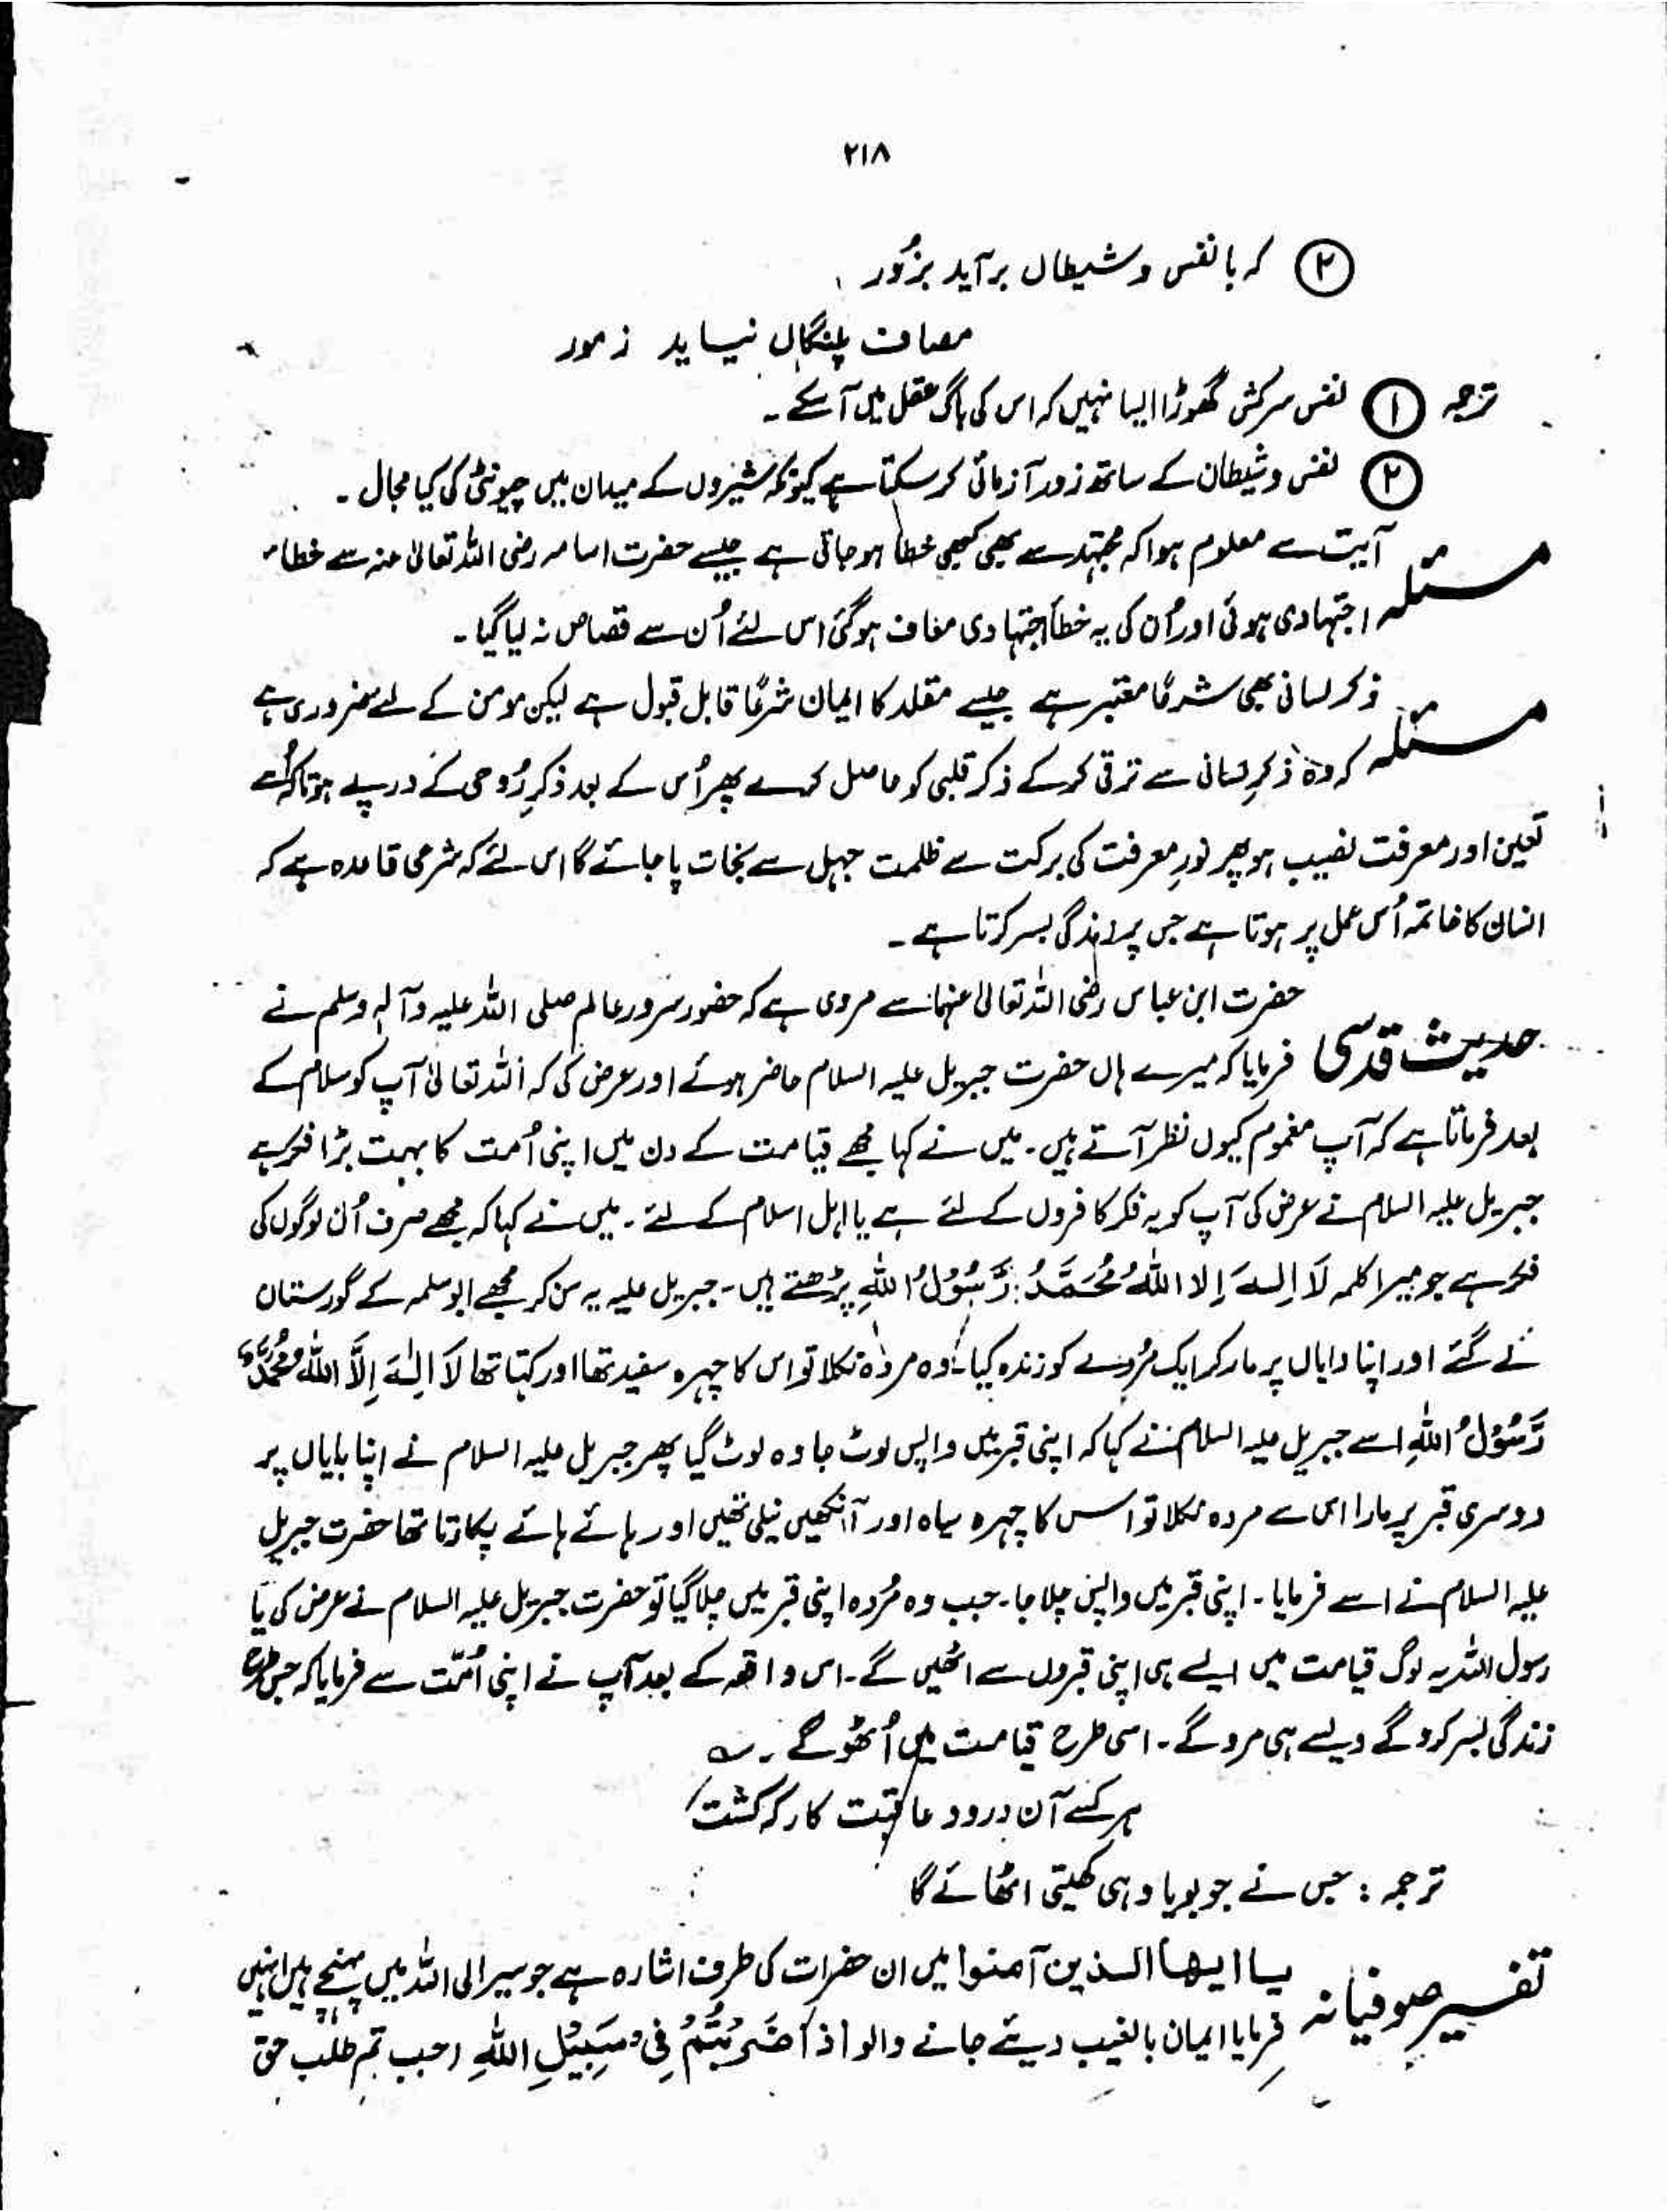 ۲۱۸
② کہ با نفس و شیطاں برآید بزُور
مصاف پلنگاں نیساید زمور
ترجمہ ① نفس سرکش گھوڑا ایسا نہیں کہ اس کی باگ عقل میں آسکے۔
② نفس و شیطان کے ساتھ زور آزمائی کرسکتا ہے کیونکہ شیروں کے میدان میں چیونٹی کی کیا مجال۔
مسئلہ آیت سے معلوم ہوا کہ مجتہد سے بھی کبھی خطا ہو جاتی ہے جیسے حضرت اسامہ رضی اللہ تعالیٰ عنہ سے خطاء
اجتہادی ہوئی اور اُن کی یہ خطأ اجتہادی معاف ہوگئی اس لئے اُن سے قصاص نہ لیا گیا۔
مسئلہ ذکر لسانی بھی شرعًا معتبر ہے جیسے مقلد کا ایمان شرعًا قابل قبول ہے لیکن مومن کے لئے ضروری ہے
کہ وہ ذکرِ لسانی سے ترقی کرکے ذکر قلبی کو حاصل کرے پھر اُس کے بعد ذکرِ رُوحی کے درپے ہو تاکہ اُسے
یقین اور معرفت نصیب ہو پھر نورِ معرفت کی برکت سے ظلمت جہل سے نجات پا جائے گا اس لئے کہ شرعی قاعدہ ہے کہ
انسان کا خاتمہ اُس عمل پر ہوتا ہے جس پر زندگی بسر کرتا ہے۔
حدیث قدسی حضرت ابن عباس رضی اللہ تعالیٰ عنہما سے مروی ہے کہ حضور سرور عالم صلی اللہ علیہ وآلہٖ وسلم نے
فرمایا کہ میرے ہاں حضرت جبریل علیہ السلام حاضر ہوئے اور عرض کی کہ اللہ تعالیٰ آپ کو سلام کے
بعد فرماتا ہے کہ آپ مغموم کیوں نظر آتے ہیں۔ میں نے کہا مجھے قیامت کے دن میں اپنی اُمت کا بہت بڑا فکر ہے
جبریل علیہ السلام نے عرض کی آپ کو یہ فکر کافروں کے لئے ہے یا اہل اسلام کے لئے۔ میں نے کہا کہ مجھے صرف اُن لوگوں کی
فکر ہے جو میرا کلمہ لَا اِلٰہَ اِلا اللہُ مُحَمَّدُ رَّسُوْلُ اللہِ پڑھتے ہیں۔ جبریل علیہ یہ سن کر مجھے ابو سلمہ کے گورستان
لے گئے اور اپنا دایاں پر مار کر ایک مُردے کو زندہ کیا۔ وہ مردہ نکلا تو اس کا چہرہ سفید تھا اور کہتا تھا لَا اِلٰہَ اِلَّا اللہُ مُحَمَّدٌ
رَّسُوْلُ اللہِ اسے جبریل علیہ السلام نے کہا کہ اپنی قبر میں واپس لوٹ جا وہ لوٹ گیا پھر جبریل علیہ السلام نے اپنا بایاں پر
دوسری قبر پر مارا اس سے مردہ نکلا تو اس کا چہرہ سیاہ اور آنکھیں نیلی تھیں اور ہائے ہائے پکارتا تھا حضرت جبریل
علیہ السلام نے اسے فرمایا۔ اپنی قبر میں واپس چلا جا۔ جب وہ مُردہ اپنی قبر میں چلا گیا تو حضرت جبریل علیہ السلام نے عرض کی یا
رسول اللہ یہ لوگ قیامت میں ایسے ہی اپنی قبروں سے اٹھیں گے۔ اس واقعہ کے بعد آپ نے اپنی اُمّت سے فرمایا کہ جس طرح
زندگی بسر کرو گے ویسے ہی مرو گے۔ اسی طرح قیامت میں اُٹھو گے۔ ؎
ہر کسے آن درود عاقبت کار کہ کشت
ترجمہ : جس نے جو بویا وہی کھیتی اٹھائے گا
تفسیر صوفیانہ یا ایھا الذین آمنوا میں ان حضرات کی طرف اشارہ ہے جو سیر الی اللہ میں پہنچے ہیں انہیں
فرمایا ایمان بالغیب دیئے جانے والو اذا ضَرَبْتُمْ فِیْ سَبِیْلِ اللہِ (جب تم طلب حق